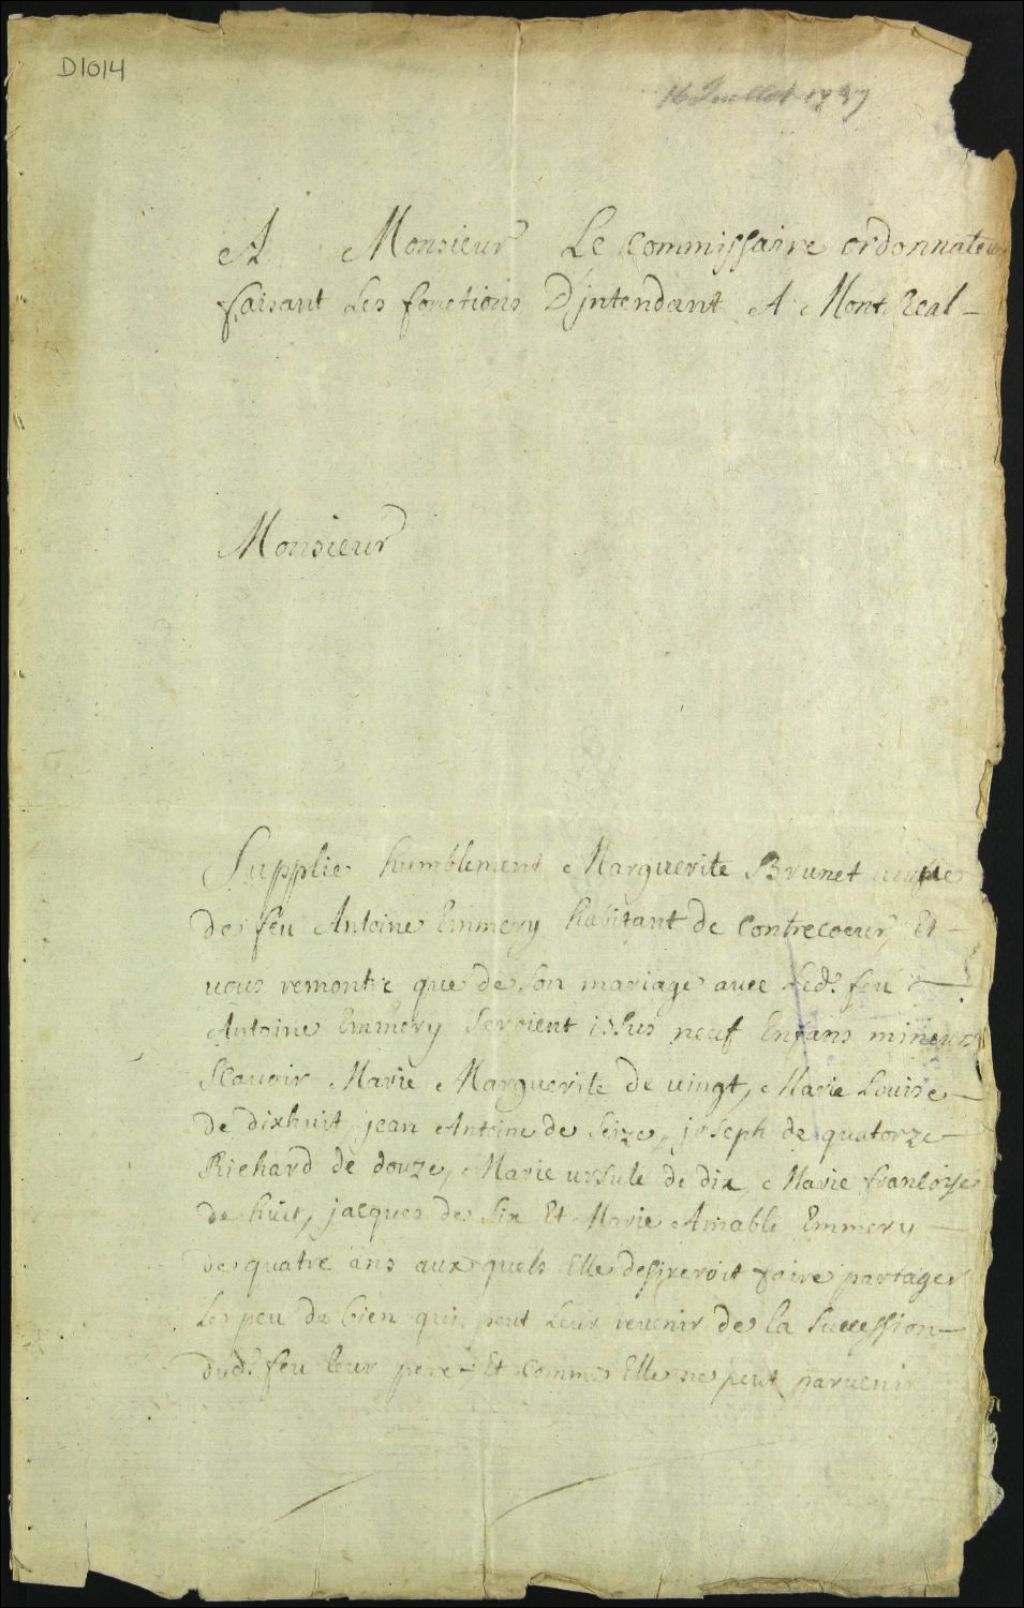 D1014
16 Juillet 1737
A Monsieur Le Commissaire ordonnateur
faisant Les fonctions D'jntendant A Mont Real —
Monsieur
Supplie humblement Marguerite Brunet veufue
de feu Antoine Emmery habitant de Contrecoeur, Et —
uous remontre que de son mariage auec Led. feu —
Antoine Emmery seroient issus neuf Enfans mineurs
Scauoir Marie Marguerite de uingt, Marie Louise —
de dixhuit, jean Antoine de Seize, joseph de quatorze —
Richard de douze, Marie ursule de dix, Marie francoise
de huit, jacques de six Et Marie Amable Emmery —
de quatre ans aux quels Elle desireroit faire partager
Le peu de bien qui peut Leur reuenir de la Succession —
dud. feu leur pere Et Comme Elle ne peut paruenir